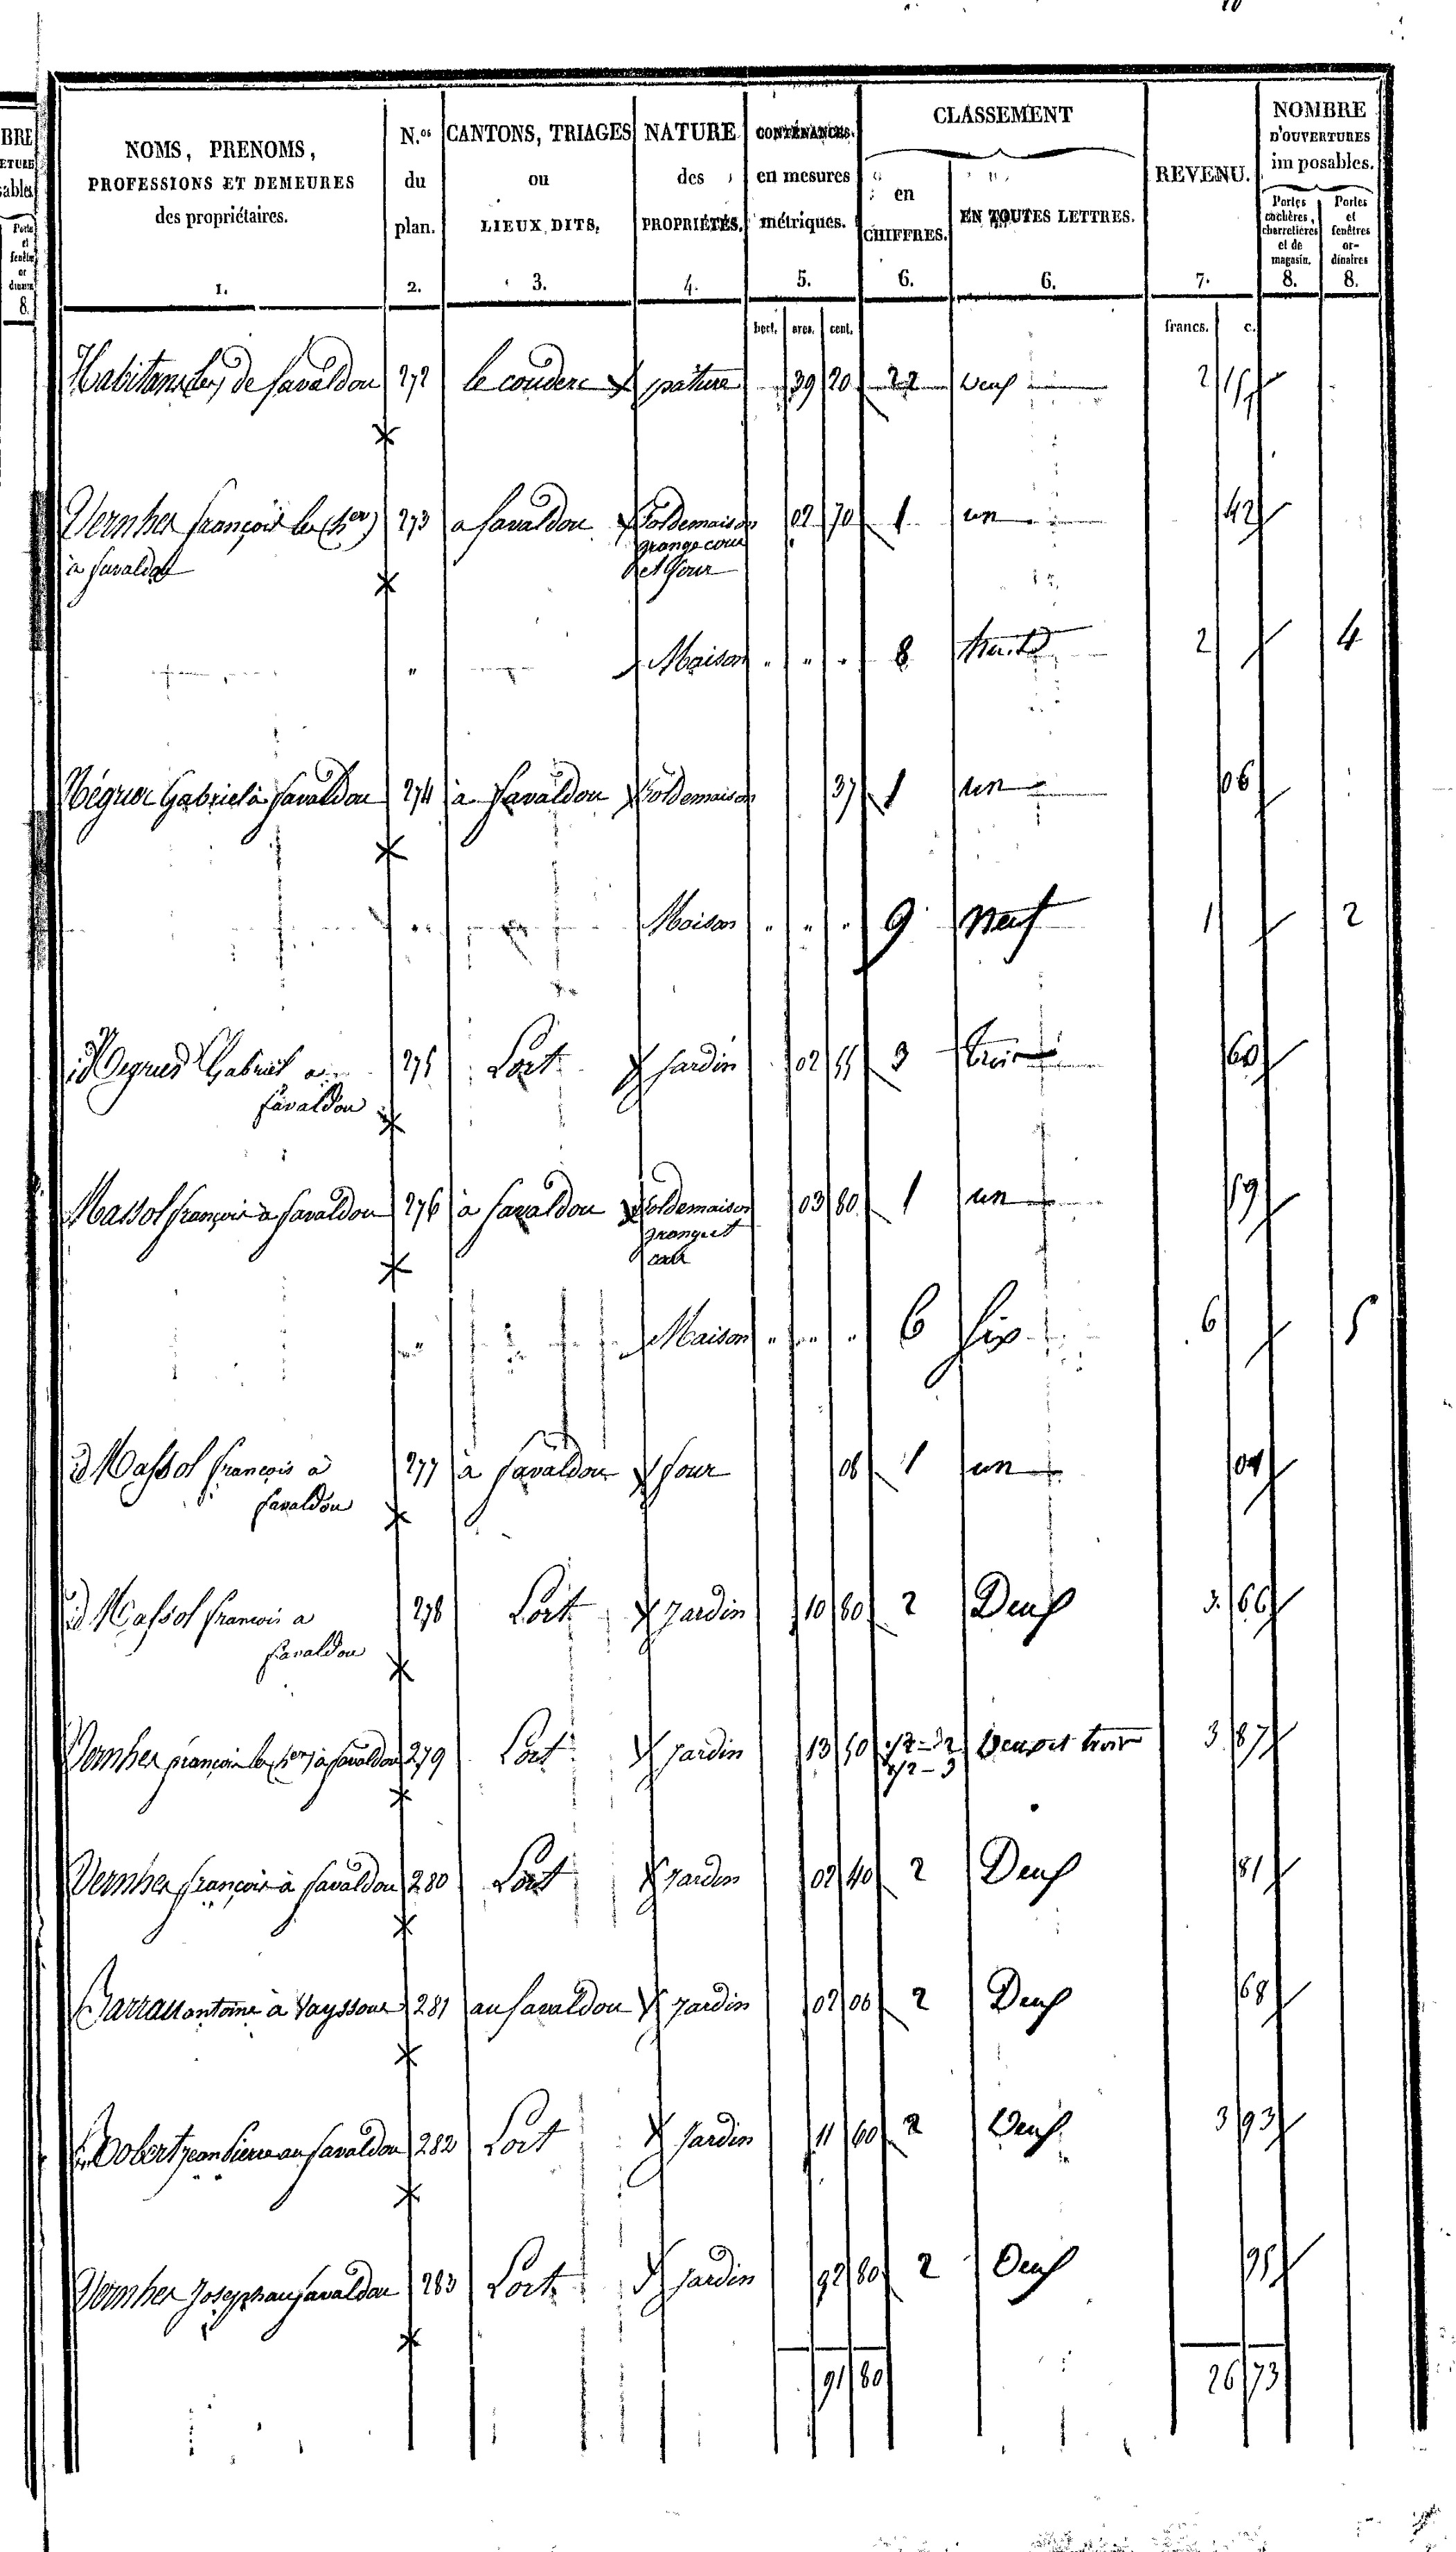 NOMS, PRENOMS,
PROFESSIONS ET DEMEURES
des propriétaires.
1.
N.os
du
plan.
2.
CANTONS, TRIAGES
ou
LIEUX DITS.
3.
NATURE
des
PROPRIÉTÉS.
4.
CONTENANCES.
en mesures
métriques.
5.
CLASSEMENT
en
CHIFFRES.
6.
EN TOUTES LETTRES.
6.
REVENU.
7.
NOMBRE
D'OUVERTURES
imposables.
Portes
cochères,
charretières
et de
magasin.
8.
Portes
et
fenêtres
or-
dinaires
8.
hect. ares. cent. francs. c.
Habitans (les) de favaldou 272 le couderc pâture 39 20 2 Deux 2
Vernher françois les (hers) 273 a favaldou Sol de maison 02 70 1 un 42
à favaldou grange cour
et four
" Maison " " " 8 huit 2 4
Négrier Gabriel à favaldou 274 à favaldou Sol de maison 37 1 un 06
Maison " " " 9 neuf 1 2
id Gabriel a 275 Lort Jardin 02 55 3 trois 60
favaldou
Massol françois à favaldou 276 à favaldou Sol de maison 03 80 1 un 59
grange et
cour
" Maison " " " 6 six 6 5
id Massol françois à 277 à favaldou four 08 1 un 01
favaldou
id Massol francois a 278 Lort Jardin 10 80 2 Deux 3 66
favaldou
Vernher françois les (hers) à favaldou 279 Lort Jardin 13 50 1/2 - 2 Deux et trois 3 87
1/2 - 3
Vernher françois à favaldou 280 Lort Jardin 02 40 2 Deux 81
Barrau antoine à Vayssoue 281 au favaldou Jardin 02 06 2 Deux 68
Robert jean Pierre au favaldou 282 Lort Jardin 11 60 2 Deux 3 93
Vernher Joseph au favaldou 283 Lort Jardin 02 80 2 Deux 95
91 80 26 73